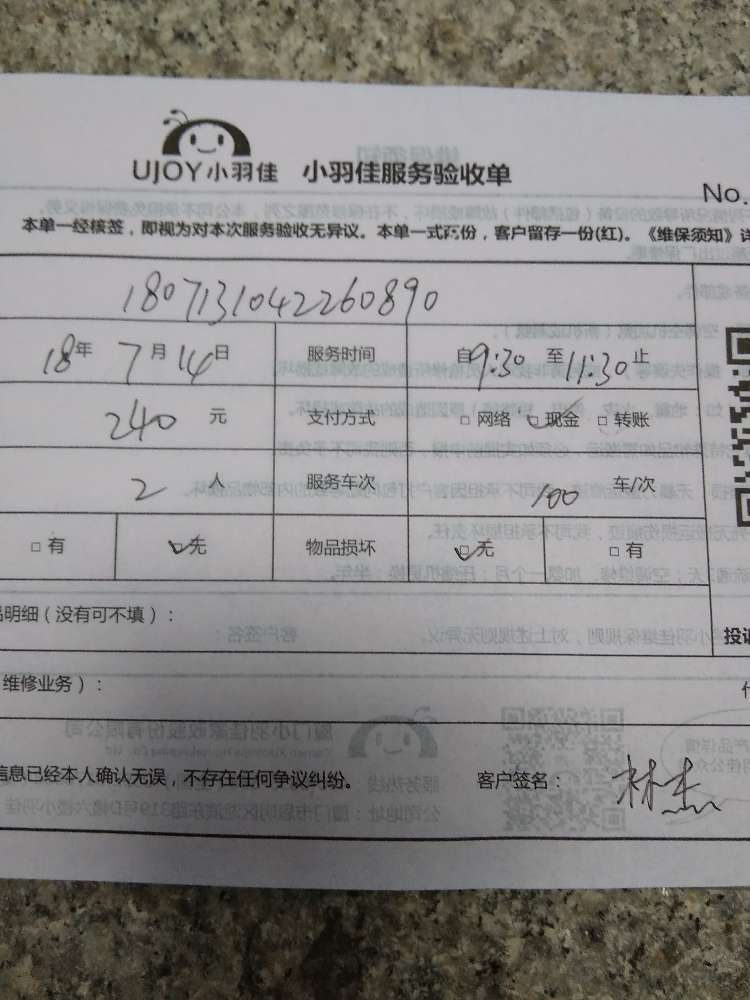 UJOY小羽佳 小羽佳服务验收单
No.
本单一经核签，即视为对本次服务验收无异议。本单一式两份，客户留存一份(红)。《维保须知》详
1807131042260890
18年 7月14日 服务时间 自9:30至11:30止
240 元 支付方式 □ 网络 □ 现金 □ 转账
2 人 服务车次 100 车/次
□ 有 □ 无 物品损坏 □ 无 □ 有
品明细（没有可不填）：
投诉
维修业务）：
信息已经本人确认无误，不存在任何争议纠纷。 客户签名： 林杰